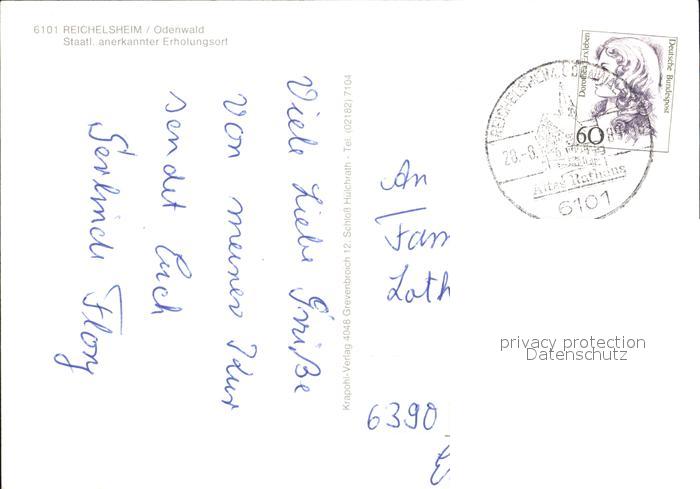 6101 REICHELSHEIM / Odenwald
Staatl. anerkannter Erholungsort
Viele Liebe Grüße
von meiner Kur
sendet Euch
Gerlinde Flory
Krapohl-Verlag 4048 Grevenbroich 12, Schloß Hülchrath - Tel. (02182) 7104
Dorothea Erxleben
Deutsche Bundespost
60
REICHELSHEIM, ODENWALD
Altes Rathaus
6101
An
Fam
Loth
6390
privacy protection
Datenschutz